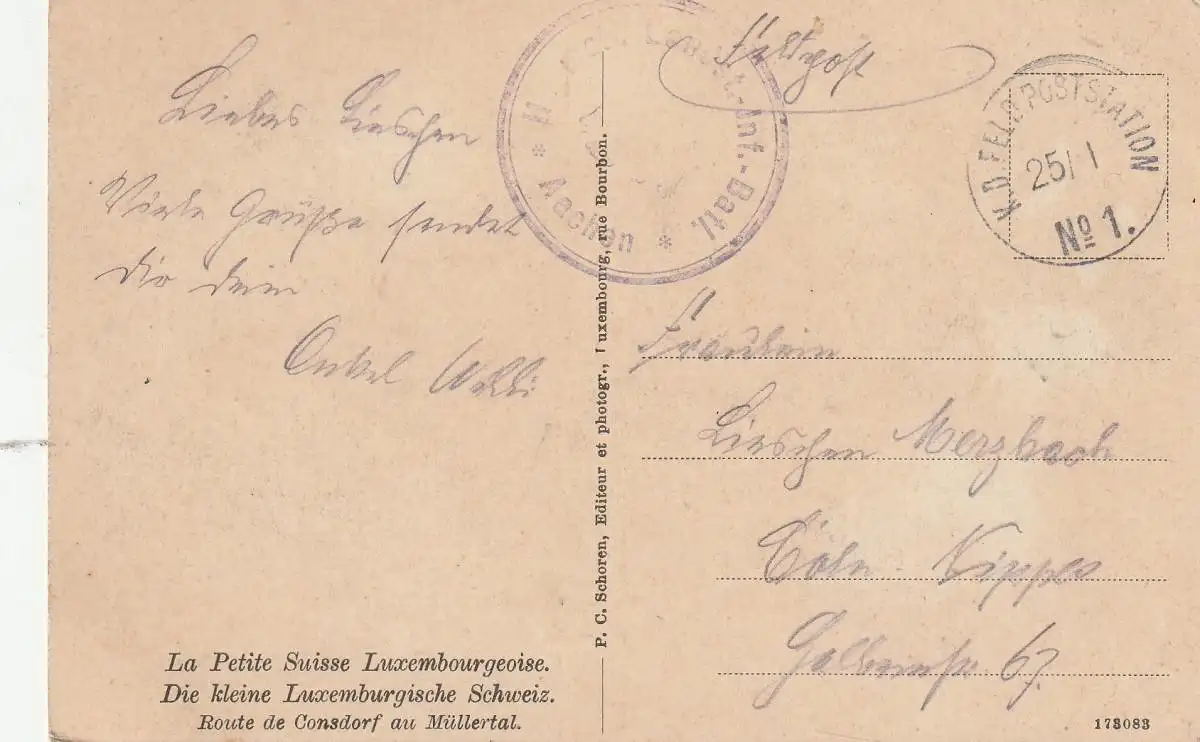 Feldpost
Liebes Lieschen
Viele Grüße sendet
dir dein
Onkel Willi
II Landst.-Inf.-Batl.
* Aachen *
K.D. FELDPOSTSTATION
25/1
No 1.
P. C. Schoren, Editeur et photogr., Luxembourg, rue Bourbon.
Fräulein
Lieschen Merzbach
Cöln Nippes
67.
La Petite Suisse Luxembourgeoise.
Die kleine Luxemburgische Schweiz.
Route de Consdorf au Müllertal.
173083